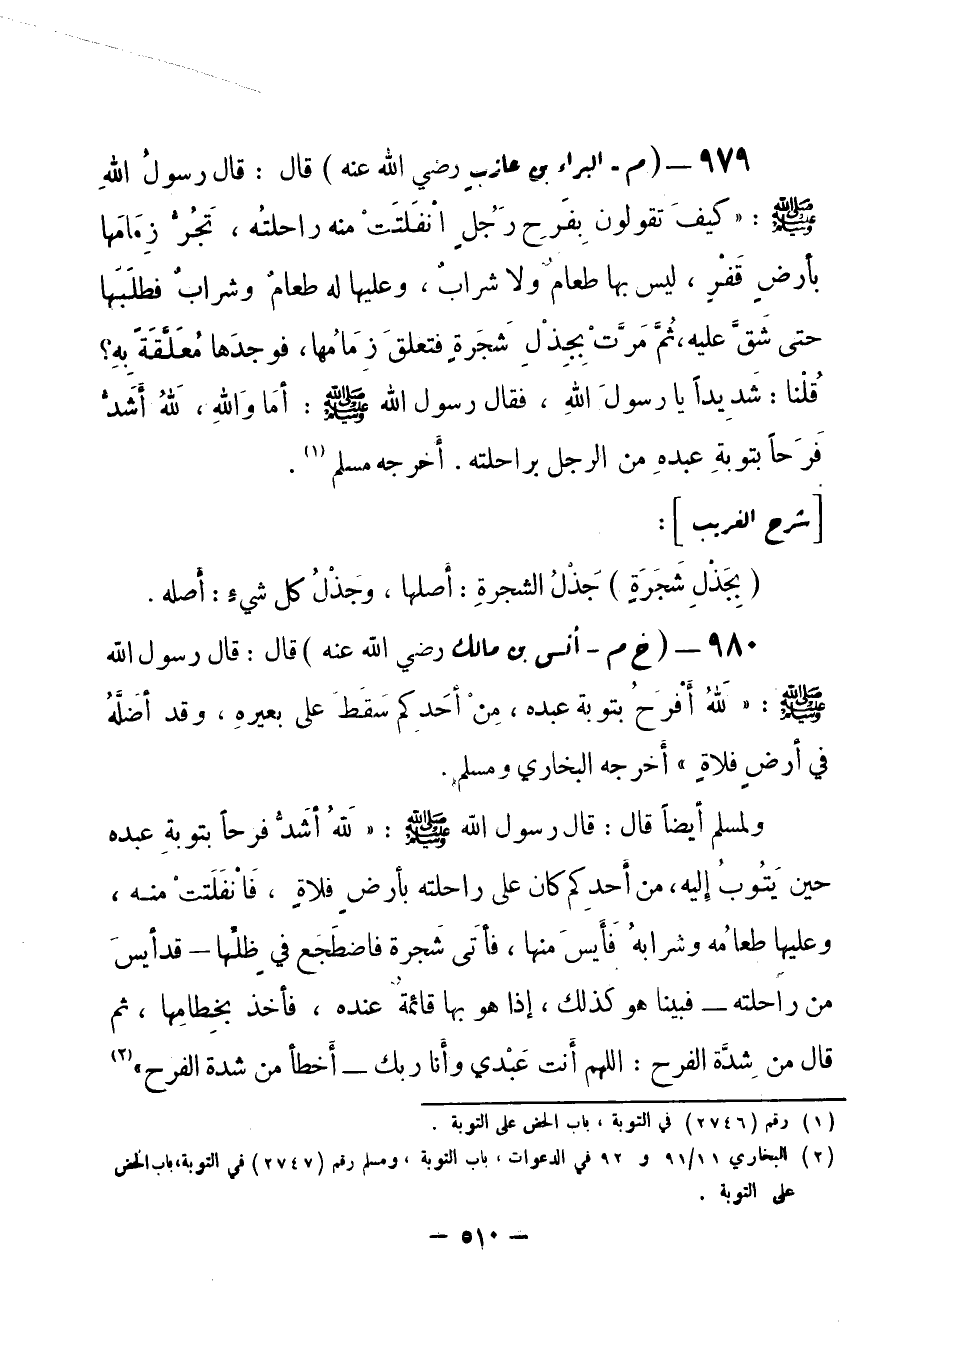 ٩٧٩ – (م - البراء بن عازبٍ رضي الله عنه) قال : قال رسولُ اللهِ
ﷺ : «كيفَ تقولون بِفَرحِ رَجُلٍ انْفَلَتَتْ منه راحلتُه ، تَجُرُّ زِمَامَها
بأرضٍ قَفْرٍ ، ليس بها طعامٌ ولا شرابٌ ، وعليها له طعامٌ وشرابٌ فطلَبَها
حتى شَقَّ عليه، ثُمَّ مَرَّتْ بِجِذْلِ شَجَرةٍ فتعلقَ زِمَامُها، فوجدَها مُعَلَّقَةً بِهِ؟
قُلْنا : شَديداً يا رسولَ اللهِ ، فقال رسول الله ﷺ : أمَا وَاللهِ ، للهُ أَشَدُّ
فَرَحاً بتوبةِ عبدهِ من الرجل براحلته . أخرجه مسلم (١) .
[شرح الغريب] :
(بِجَذْلِ شَجَرَةٍ) جَذْلُ الشجرةِ : أصلها ، وجَذْلُ كل شيءٍ : أصله .
٩٨٠ – (خ م - أنس بن مالك رضي الله عنه) قال : قال رسول الله
ﷺ : «للهُ أَفْرَحُ بتوبة عبده ، مِنْ أَحَدِكم سَقَطَ على بعيرهِ ، وقد أضَلَّهُ
في أرضٍ فلاةٍ» أخرجه البخاري ومسلم .
ولمسلم أيضاً قال : قال رسول الله ﷺ : «للهُ أشَدُّ فرحاً بتوبةِ عبده
حين يَتُوبُ إليه، من أَحدِكم كان على راحلته بأرضٍ فلاةٍ ، فَانْفَلَتتْ منه ،
وعليها طعامُه وشرابهُ فَأَيِسَ منها ، فأتى شَجرة فاضطَجَع في ظِلِّها – قد أيسَ
من راحلته – فبينا هو كذلك ، إذا هو بها قائمةٌ عنده ، فأخذ بخِطامِها ، ثم
قال من شِدَّة الفرح : اللهم أنت عَبْدي وأنا ربك – أَخطأ من شدة الفرح» (٢)
(١) رقم (٢٧٤٦) في التوبة ، باب الحض على التوبة .
(٢) البخاري ٩١/١١ و ٩٢ في الدعوات ، باب التوبة ، ومسلم رقم (٢٧٤٧) في التوبة، باب الحض
على التوبة .
– ٥١٠ –